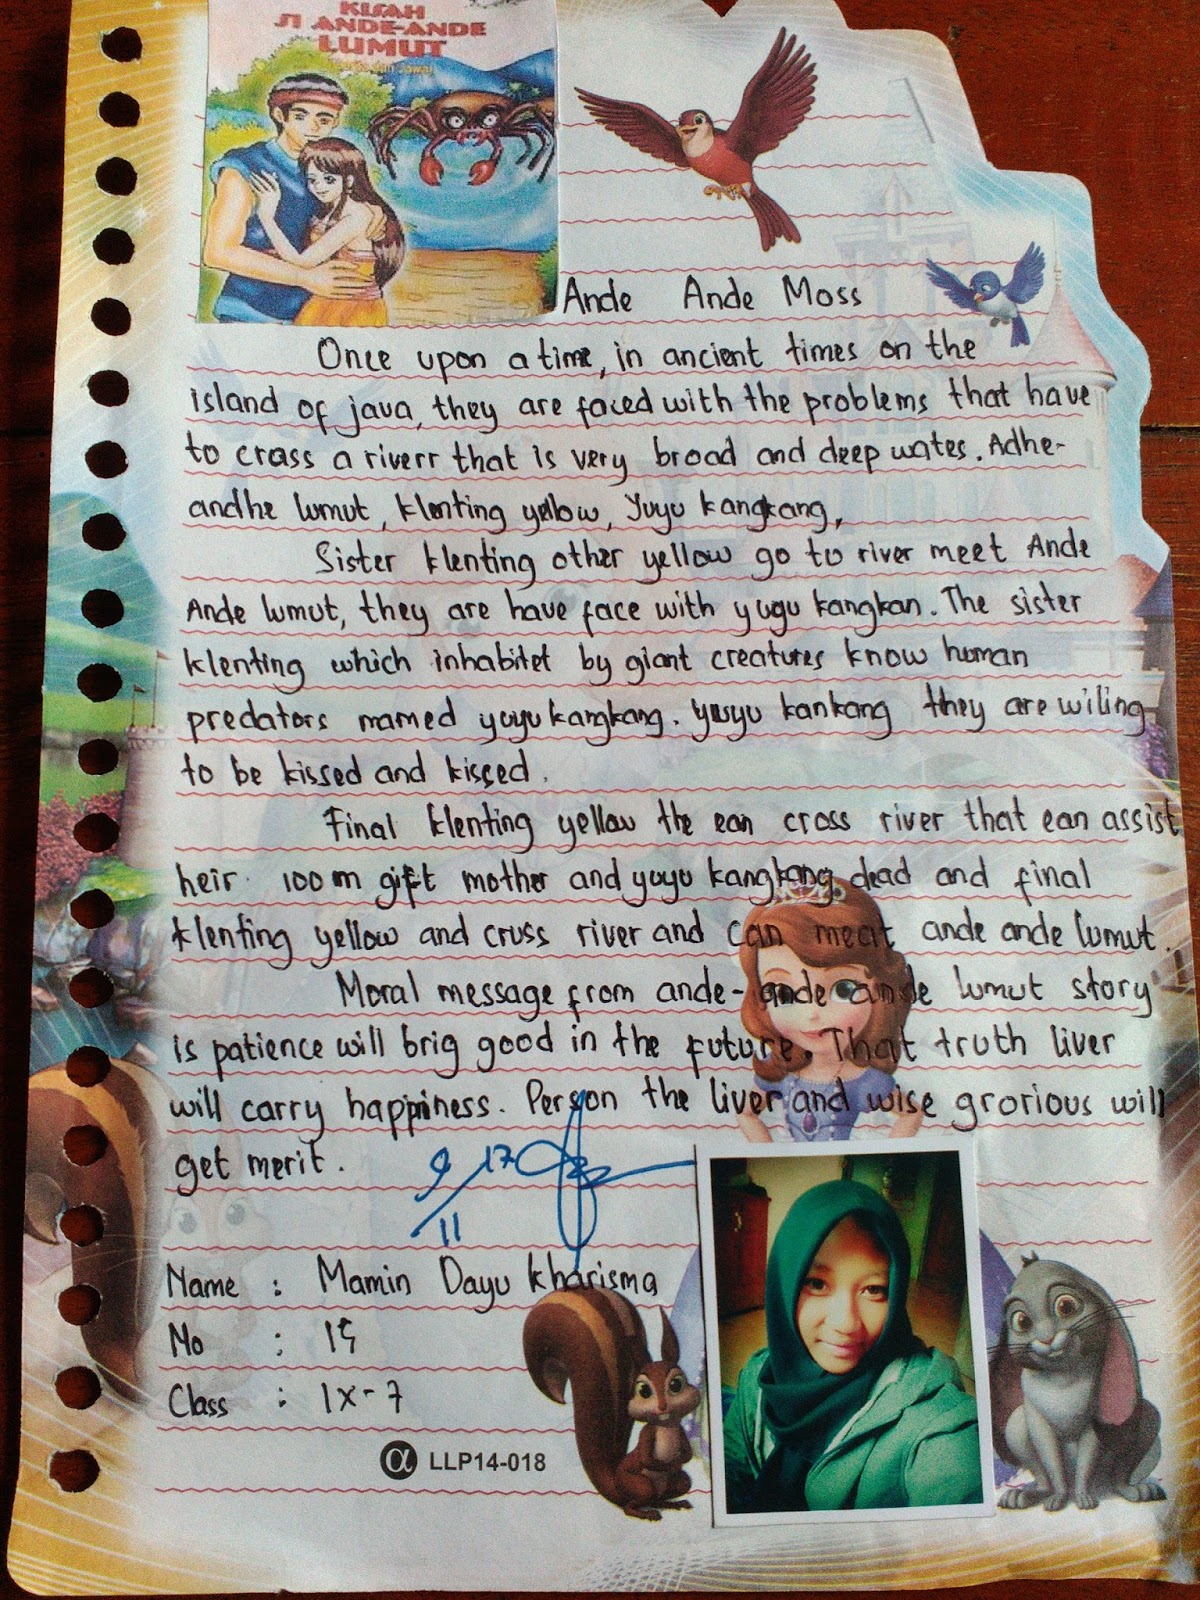 KISAH
SI ANDE-ANDE
LUMUT
Ande Ande Moss
Once upon a time, in ancient times on the
island of java, they are faced with the problems that have
to crass a riverr that is very broad and deep wates. Adhe-
andhe lumut, klenting yellow, Yuyu kangkang,
Sister klenting other yellow go to river meet Ande
Ande lumut, they are have face with yuyu kangkan. The sister
klenting which inhabitet by giant creatures know human
predators mamed yuyu kangkang. yuyu kankang they are wiling
to be kissed and kissed.
Final klenting yellow the ean cross river that ean assist
heir. 100 m gift mother and yuyu kangkang dead and final
klenting yellow and cruss river and can meat ande ande lumut.
Moral message from ande-ande ande lumut story
is patience will brig good in the future. That truth liver
will carry happiness. Person the liver and wise grorious will
get merit.
9/11 17
Name : Mamin Dayu Kharisma
No : 19
Class : IX-7
α LLP14-018